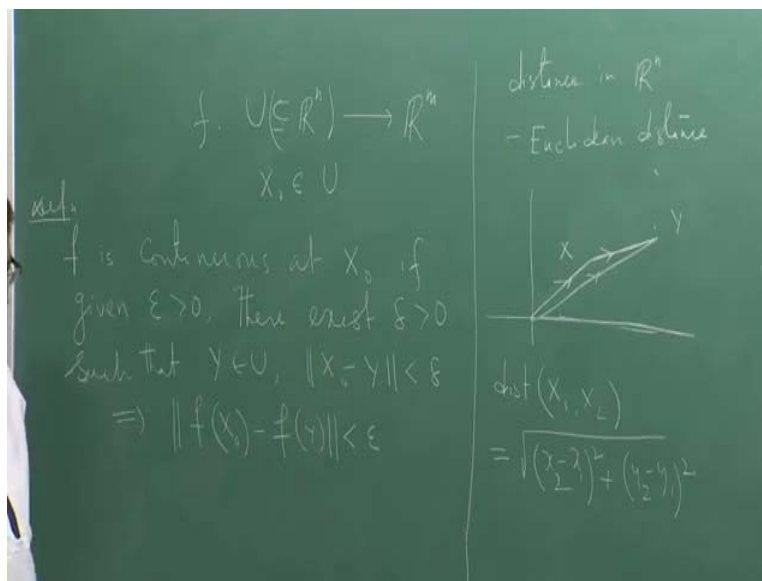 f: U(⊆ ℝⁿ) → ℝᵐ
X₀ ∈ U
defn
f is continuous at X₀ if
given ε>0, there exist δ>0
such that Y∈U, ||X₀-Y|| < δ
⇒ ||f(X₀)-f(Y)|| < ε
distance in ℝⁿ
- Euclidean distance
X
Y
dist(X₁, X₂)
= √((x₂-x₁)² + (y₂-y₁)²)